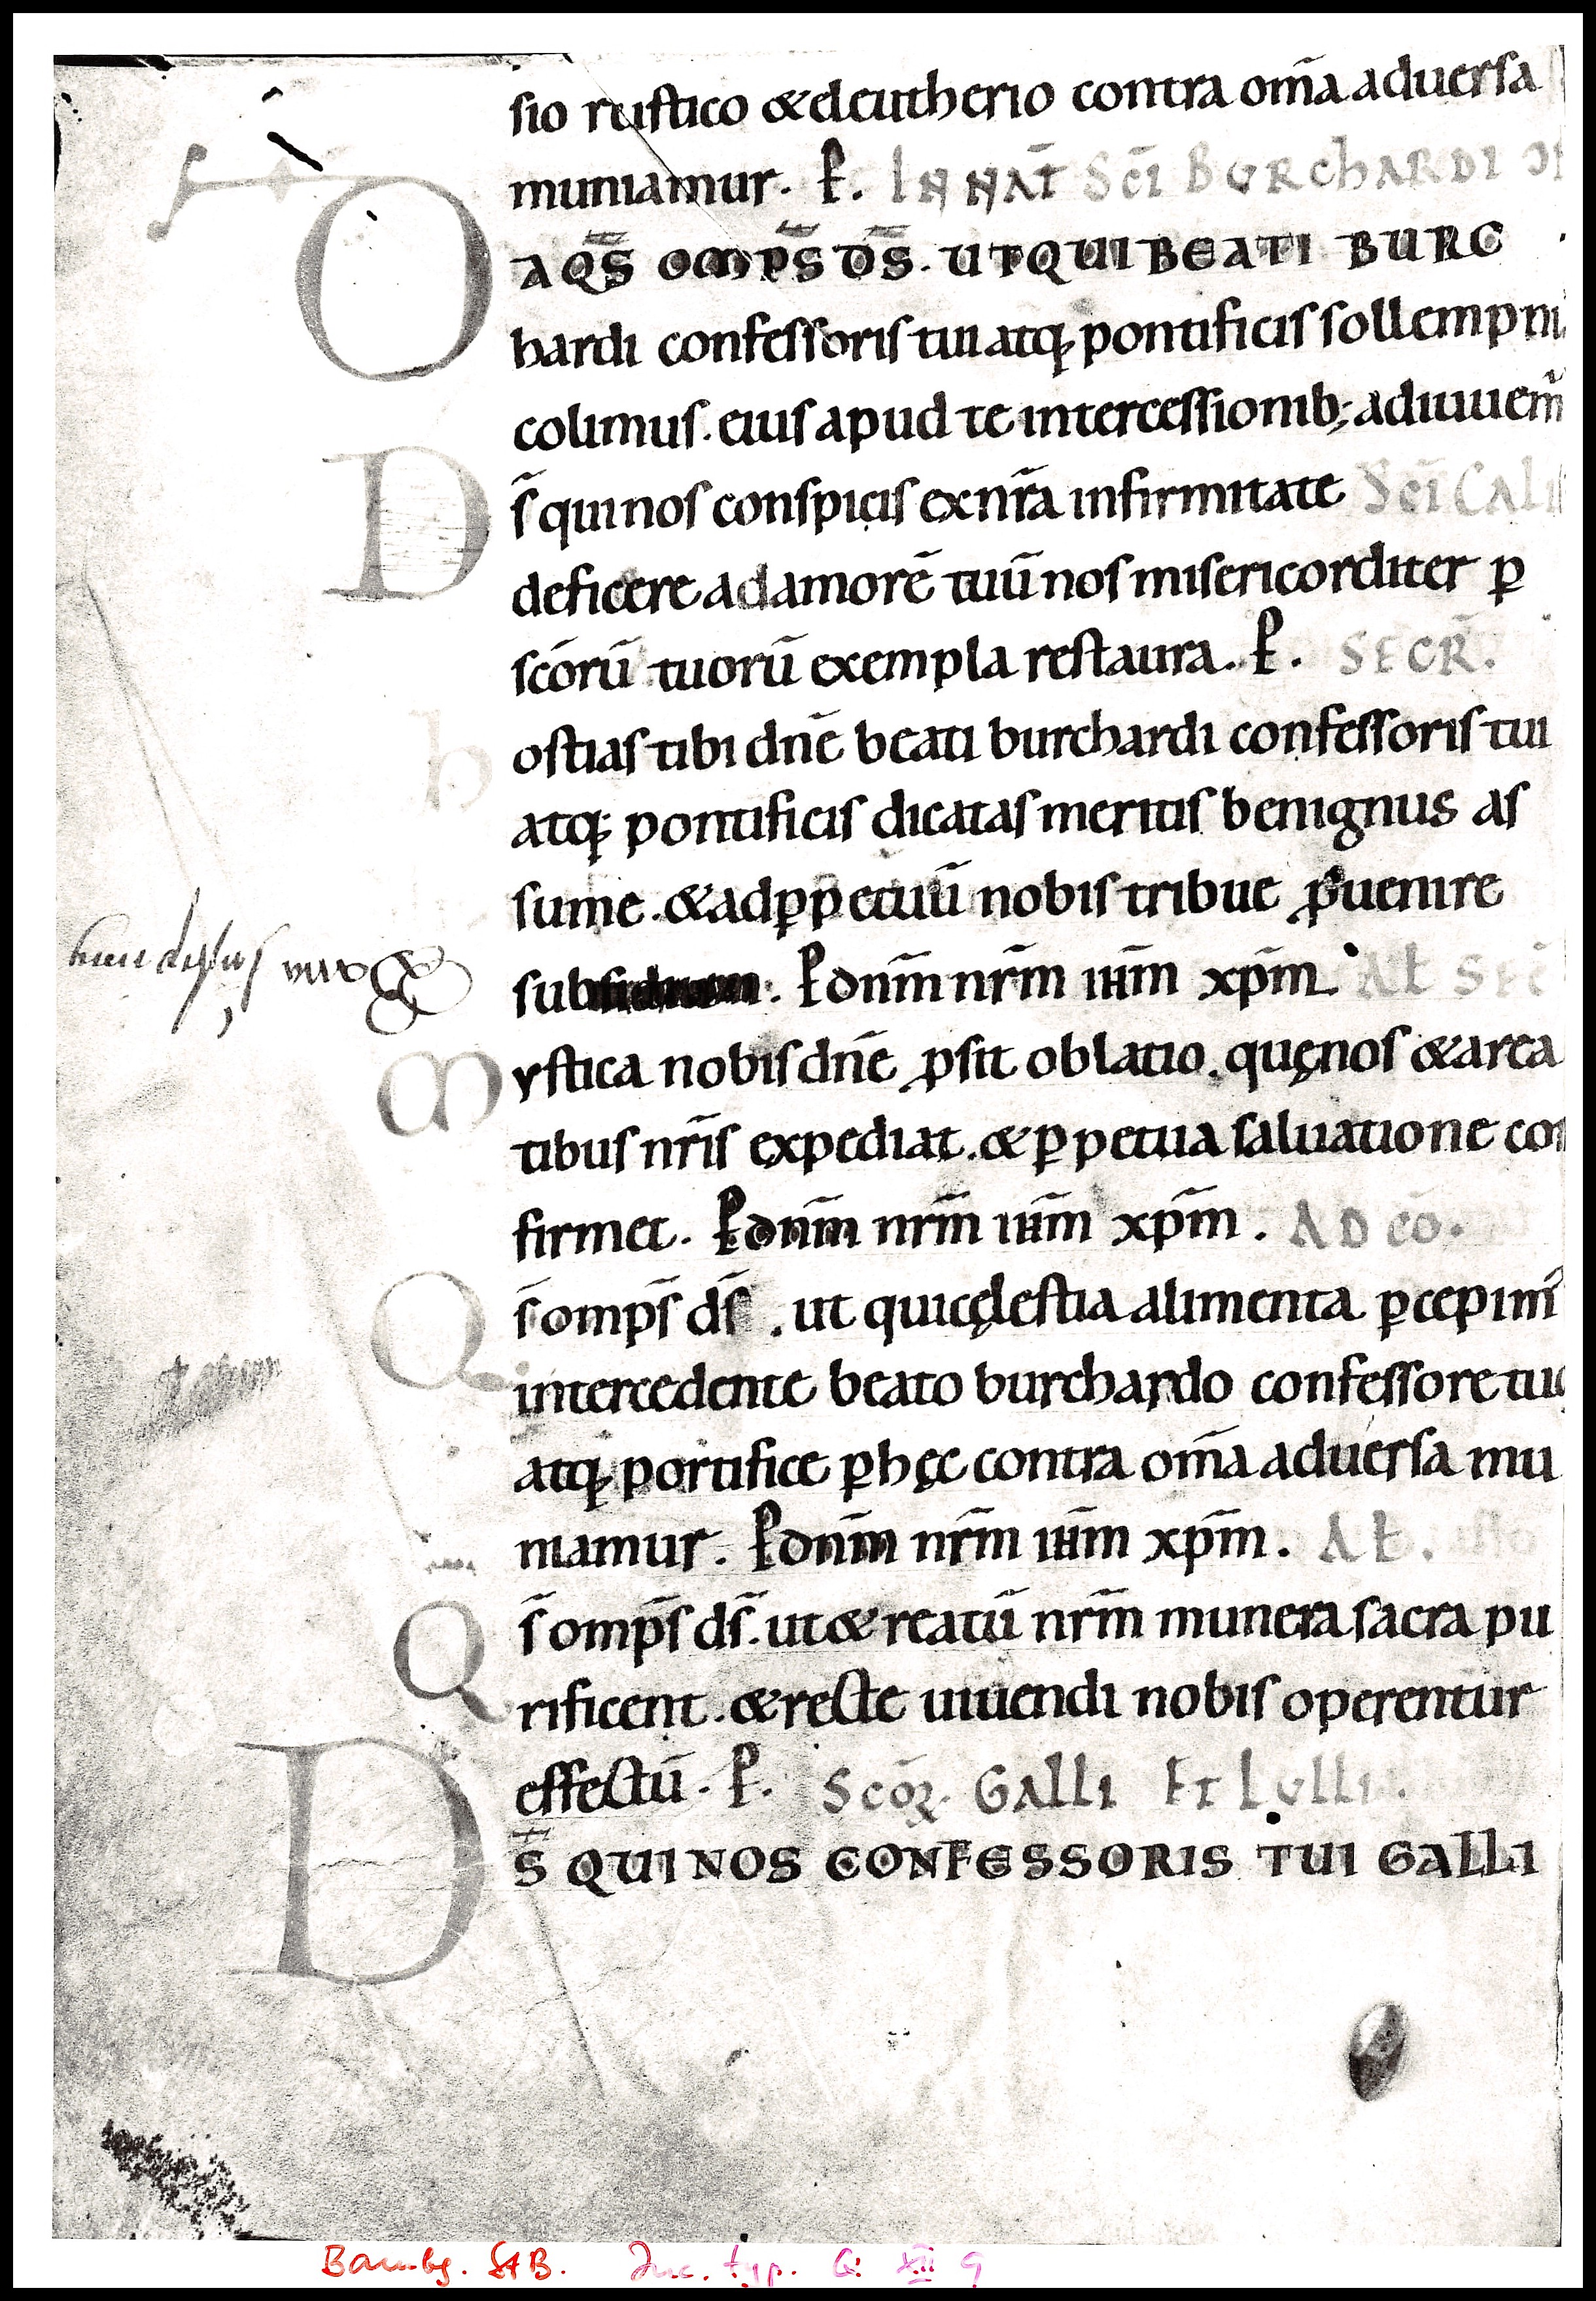 sio rustico & eleutherio contra om̄a aduersa
muniamur. P. IN NAT̄ SC̄I BURChARDI
O AQ̄S OMP̄S D̄S. UT QUI BEATI BURC
hardi confessoris tui atq; pontificis sollempni
colimus. eius apud te intercessionib; adiuuem̄
D s̄ qui nos conspicis ex nr̄a infirmitate SC̄I CALI
deficere ad amorē tuū nos misericorditer p̱
sc̄orū tuorū exempla restaura. P. SECR̄.
h ostias tibi dn̄e beati burchardi confessoris tui
atq; pontificis dicatas meritis benignus as
sume. & ad p̱petuū nobis tribue ꝓuenire
sub P dn̄m nr̄m ih̄m xp̄m. AŁ SEC̄
M ystica nobis dn̄e ꝓsit oblatio. quę nos & a rea
tibus nr̄is expediat. & p̱petua saluatione con
firmet. P dn̄m nr̄m ih̄m xp̄m. AD CŌ.
Q s̄ omp̄s ds̄. ut qui cęlestia alimenta p̱cepim̄
intercedente beato burchardo confessore tuo
atq; pontifice p̱ hęc contra om̄a aduersa mu
niamur. P dn̄m nr̄m ih̄m xp̄m. AŁ.
Q s̄ omp̄s ds̄. ut & reatū nr̄m munera sacra pu
rificent. & recte uiuendi nobis operentur
effectū. P. SCOꝜ. GALLI ET LULLI.
D S̄ QUI NOS CONFESSORIS TUI GALLI
Bambg. StB. Inc. typ. Q XIII 9